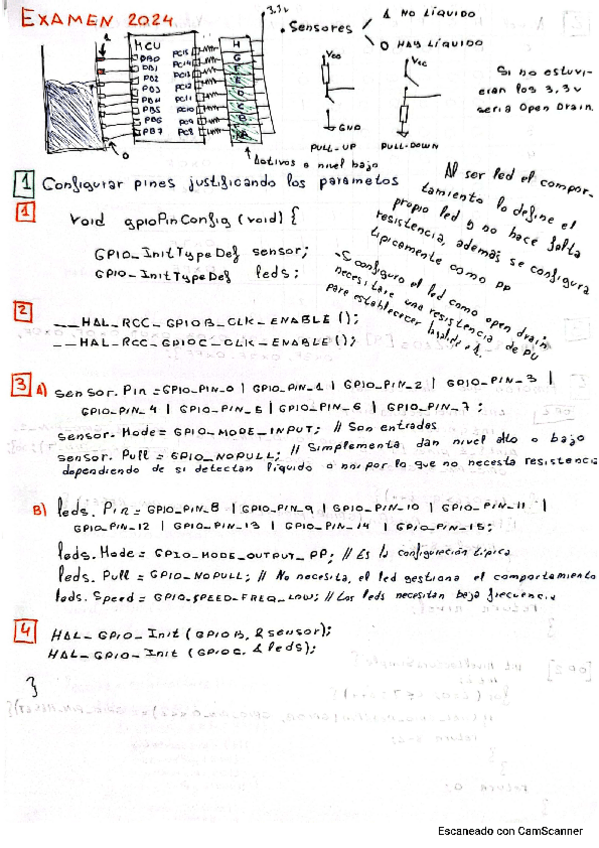 EXAMEN 2024
3.3v
. Sensores
1 NO LÍQUIDO
0 HAY LÍQUIDO
1
MCU
PB0
PB1
PB2
PB3
PB4
PB5
PB6
PB7
PC15
PC14
PC13
PC12
PC11
PC10
PC9
PC8
H
G
0
Vcc
GND
PULL-UP
Vcc
PULL-DOWN
Si no estuvi-
eran los 3,3v
seria Open Drain.
Activos a nivel bajo
1 Configurar pines justificando los parametos
Al ser led el compor-
tamiento lo define el
propio led y no hace falta
resistencia, además se configura
tipicamente como PP
1 void gpioPinConfig (void) {
GPIO_InitTypeDef sensor;
GPIO_InitTypeDef leds;
-Si configuro el led como open drain
necesitare una resistencia de PU
para establecer
2 __HAL_RCC_GPIOB_CLK_ENABLE();
__HAL_RCC_GPIOC_CLK_ENABLE();
3 A) sensor.Pin = GPIO_PIN_0 | GPIO_PIN_1 | GPIO_PIN_2 | GPIO_PIN_3 |
GPIO_PIN_4 | GPIO_PIN_5 | GPIO_PIN_6 | GPIO_PIN_7;
sensor.Mode = GPIO_MODE_INPUT; // Son entradas
sensor.Pull = GPIO_NOPULL; // Simplementa dan nivel alto o bajo
dependiendo de si detectan líquido o no, por lo que no necesta resistencia
B) leds.Pin = GPIO_PIN_8 | GPIO_PIN_9 | GPIO_PIN_10 | GPIO_PIN_11 |
GPIO_PIN_12 | GPIO_PIN_13 | GPIO_PIN_14 | GPIO_PIN_15;
leds.Mode = GPIO_MODE_OUTPUT_PP; // Es la configuración típica
leds.Pull = GPIO_NOPULL; // No necesita, el led gestiona el comportamiento
leds.Speed = GPIO_SPEED_FREQ_LOW; // Los leds necesitan baja frecuencia
4 HAL_GPIO_Init (GPIOB, &sensor);
HAL_GPIO_Init (GPIOC, &leds);
}
Escaneado con CamScanner